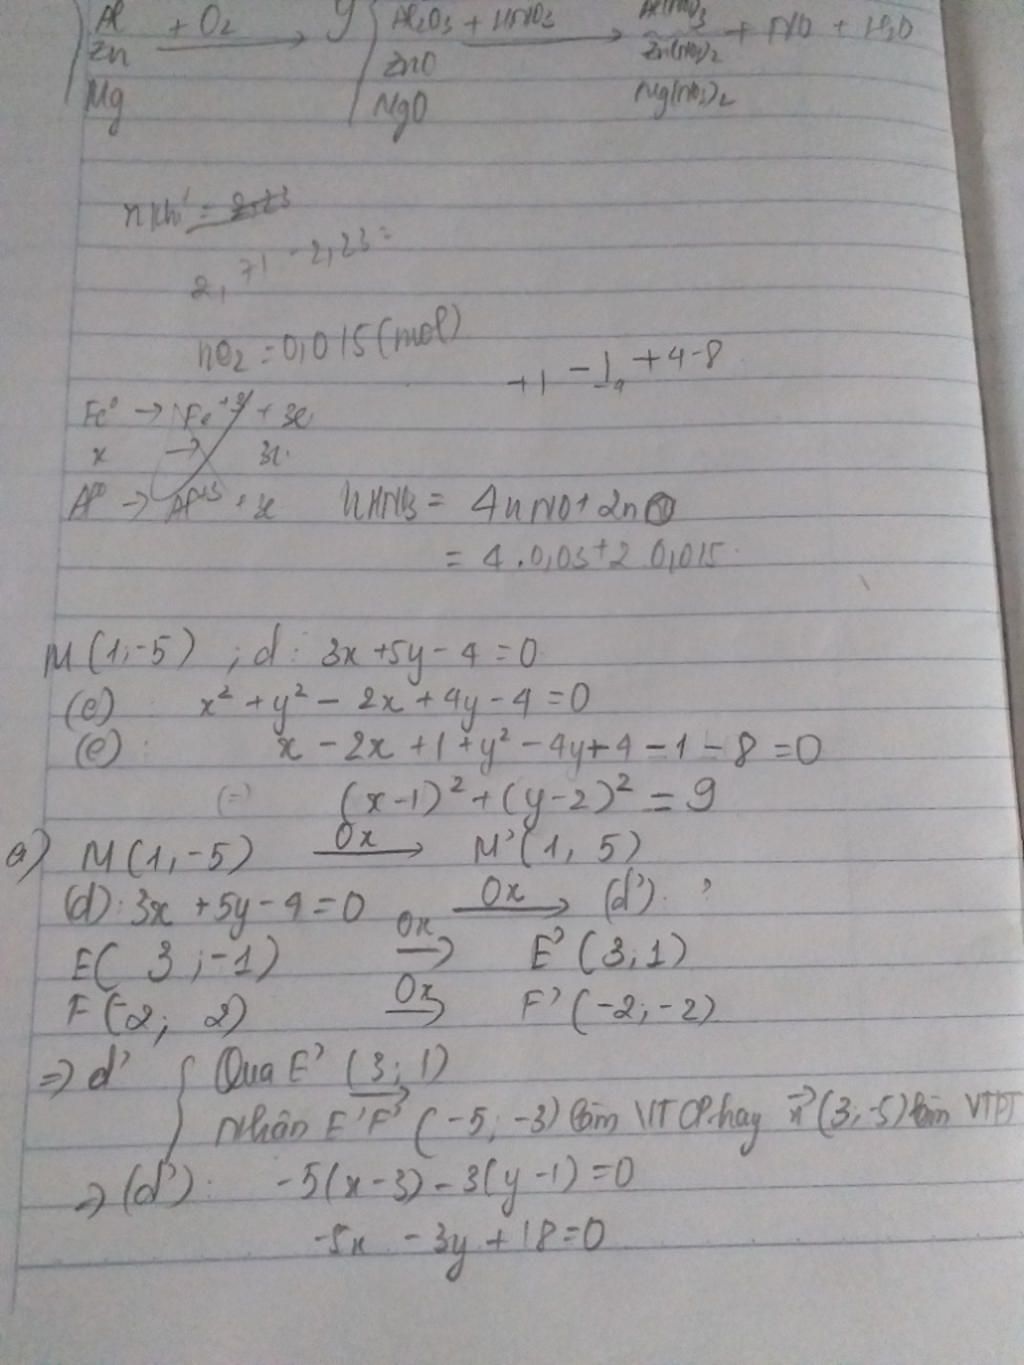 Al + O2 → Y Al2O3 + HNO3 → Al(NO3)3 + NO + H2O
Zn ZnO Zn(NO3)2
Mg MgO Mg(NO3)2
n khí = 2,23
2,71 - 2,23 =
nO2 = 0,015 (mol)
+1 - 1, +4-8
Fe⁰ → Fe⁺³ + 3e
x → 3x
Al⁰ → Al⁺³ + 3e nHNO3 = 4nNO + 2nO
= 4.0,03 + 2 0,015
M(1;-5) ; d: 3x+5y-4=0
(C) x² + y² - 2x + 4y - 4 = 0
(C): x - 2x + 1 + y² - 4y + 4 - 1 - 8 = 0
(=) (x-1)² + (y-2)² = 9
a) M(1,-5) Ox→ M'(1,5)
(d): 3x + 5y - 4 = 0 Ox→ (d') ?
E(3;-1) Ox→ E'(3;1)
F(-2; 2) Ox→ F'(-2;-2)
=> d' { Qua E' (3;1)
Nhận E'F' (-5;-3) làm VTCP hay n(3;-5) làm VTPT
=> (d'): -5(x-3) - 3(y-1) = 0
-5x - 3y + 18 = 0